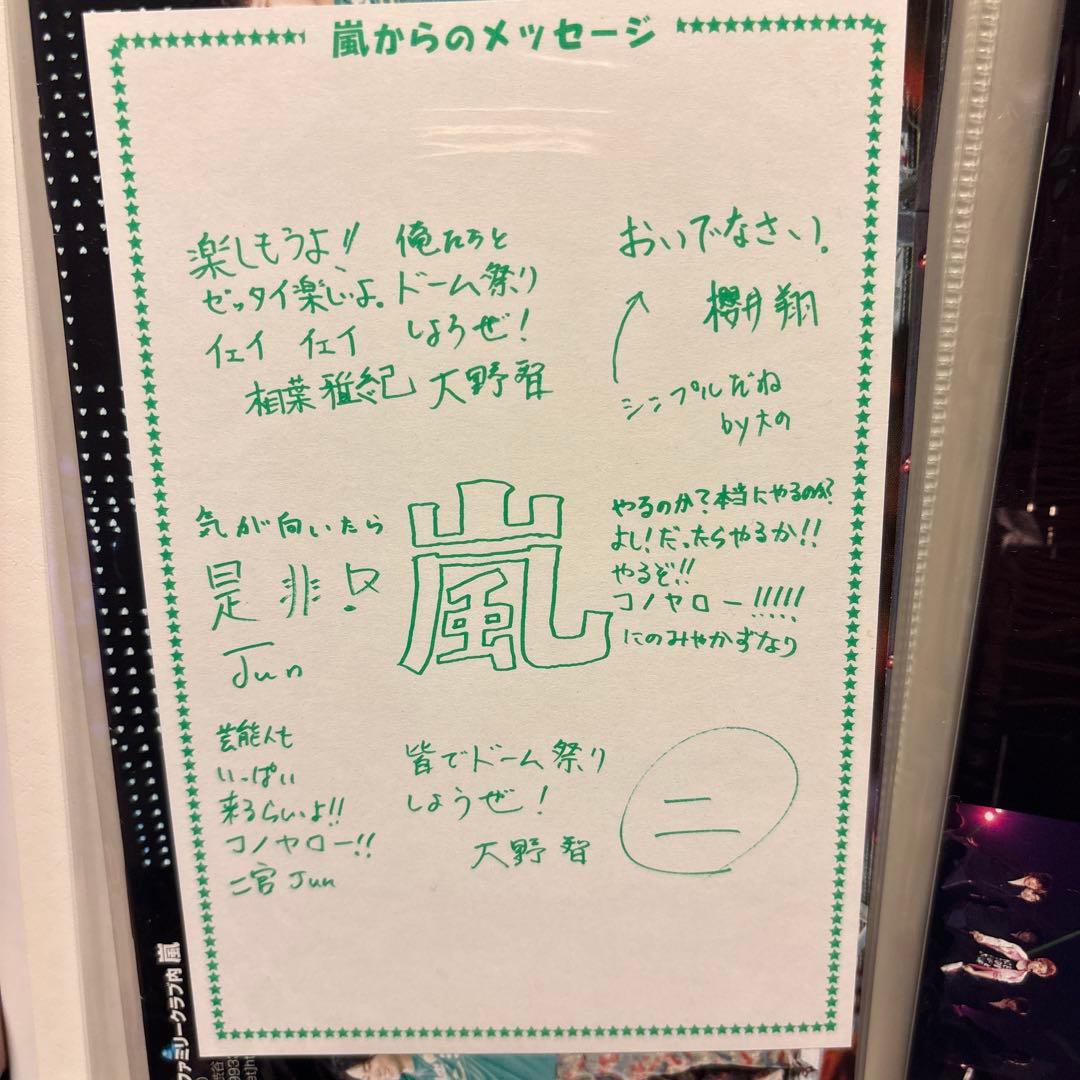 嵐からのメッセージ
楽しもうよ!!
ゼッタイ楽しいよ。
イェイ イェイ
相葉雅紀
俺たちと
ドーム祭り
しようぜ!
大野智
おいでなさい。
櫻井翔
シンプルだね
by大の
気が向いたら
是非!
Jun
嵐
やるのか?本当にやるのか?
よし!だったらやるか!!
やるぞ!!
コノヤロー!!!!!
にのみやかずなり
芸能人も
いっぱい
来るらしいよ!!
コノヤロー!!
二宮 Jun
皆でドーム祭り
しようぜ!
大野智
二
ファミリークラブ内 嵐